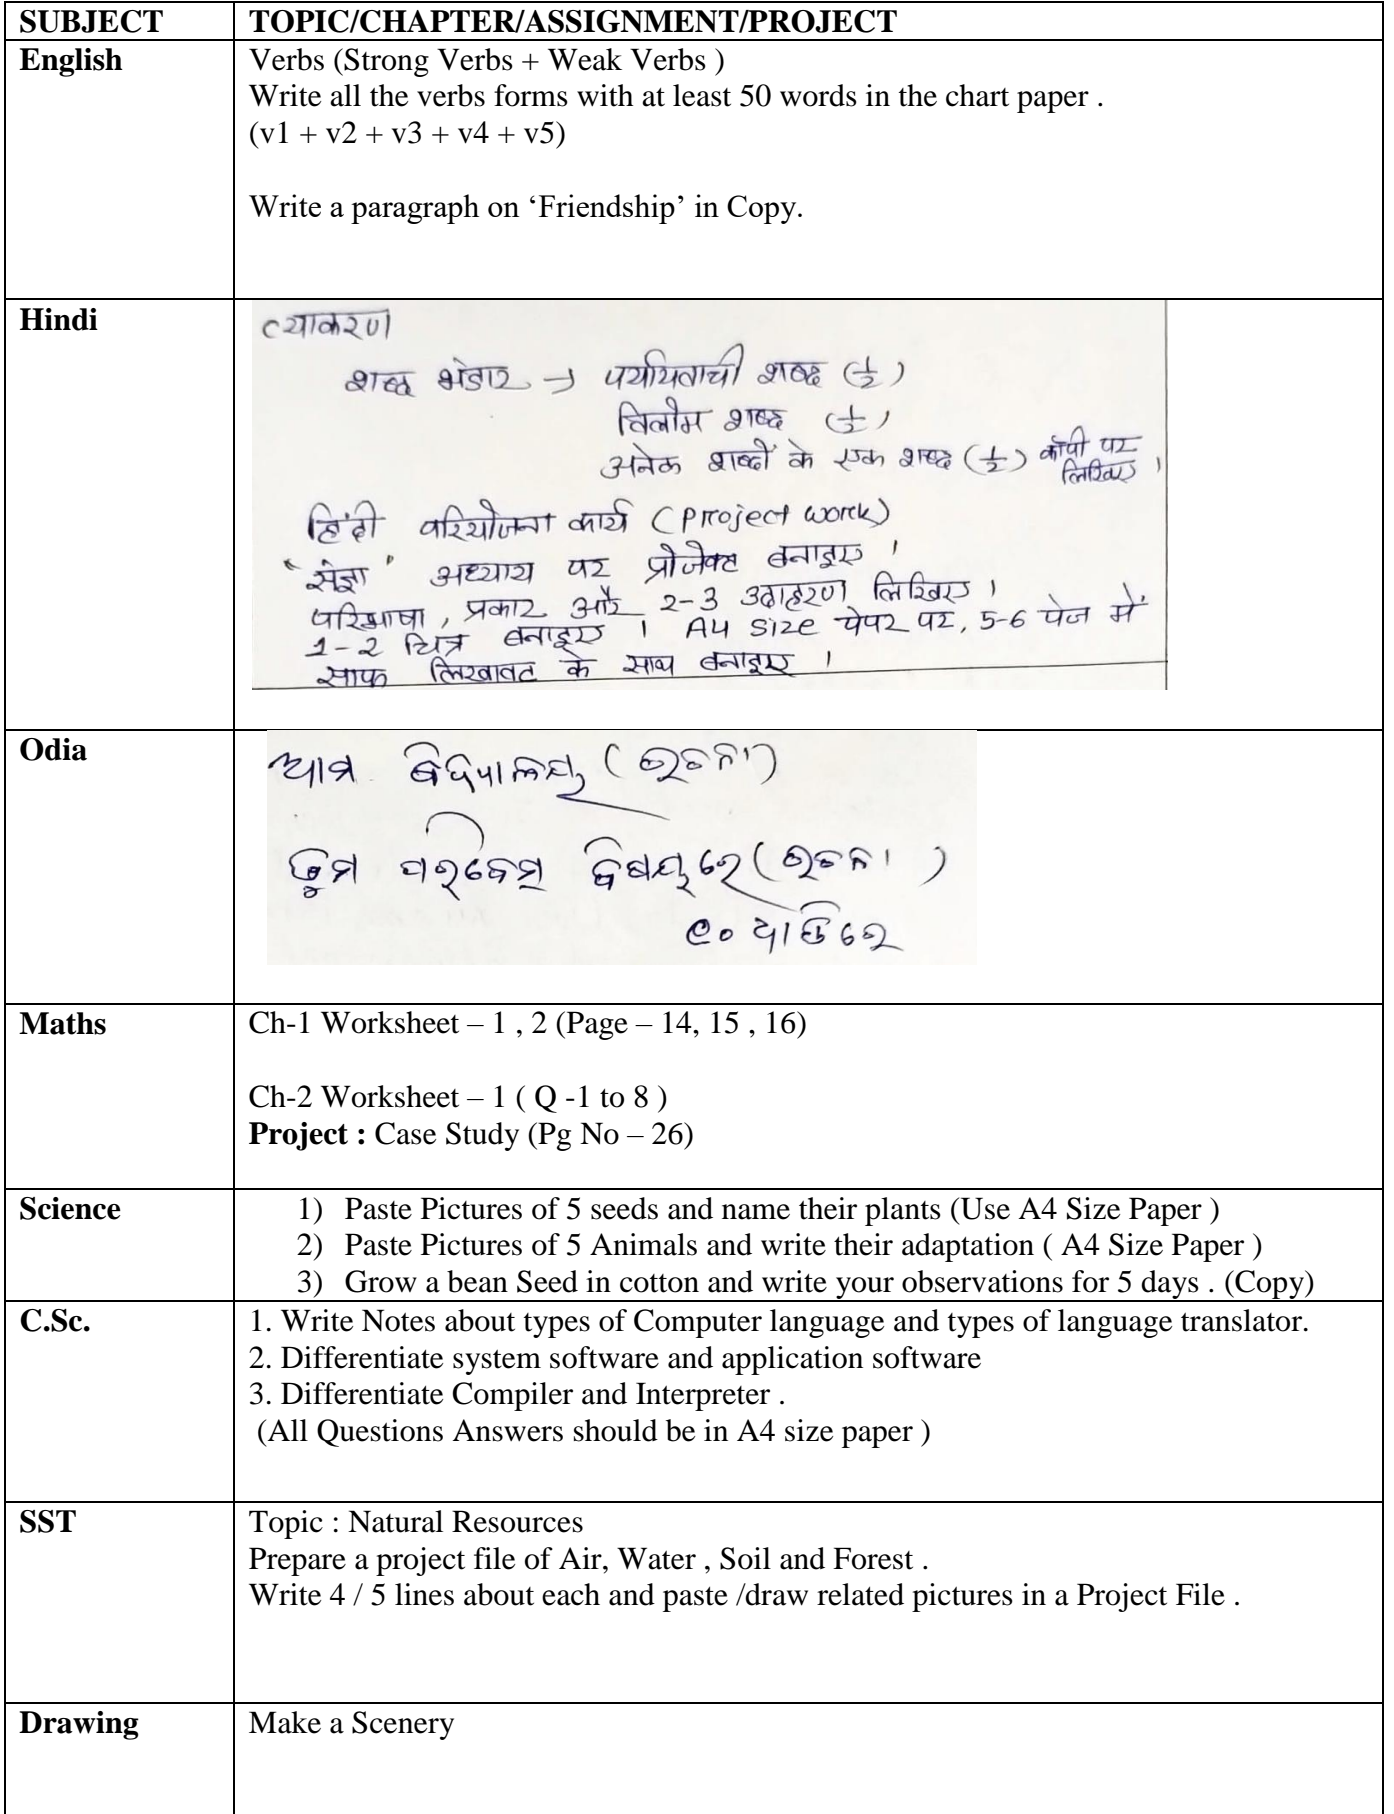 SUBJECT TOPIC/CHAPTER/ASSIGNMENT/PROJECT
English Verbs (Strong Verbs + Weak Verbs )
Write all the verbs forms with at least 50 words in the chart paper .
(v1 + v2 + v3 + v4 + v5)
Write a paragraph on ‘Friendship’ in Copy.
Hindi
व्याकरण
शब्द भंडार → पर्यायवाची शब्द (1/2)
विलोम शब्द (1/2)
अनेक शब्दों के एक शब्द (1/2) कॉपी पर लिखिए ।
हिंदी परियोजना कार्य (Project work)
"संज्ञा" अध्याय पर प्रोजेक्ट बनाइए ।
परिभाषा, प्रकार और 2-3 उदाहरण लिखिए ।
1-2 चित्र बनाइए । A4 size पेपर पर, 5-6 पेज में
साफ लिखावट के साथ बनाइए ।
Odia
ଆମ ବିଦ୍ୟାଳୟ (ରଚନା)
ତୁମ ପରିବେଶ ବିଷୟରେ (ରଚନା)
୧୦ ଧାଡିରେ
Maths Ch-1 Worksheet – 1 , 2 (Page – 14, 15 , 16)
Ch-2 Worksheet – 1 ( Q -1 to 8 )
Project : Case Study (Pg No – 26)
Science 1) Paste Pictures of 5 seeds and name their plants (Use A4 Size Paper )
2) Paste Pictures of 5 Animals and write their adaptation ( A4 Size Paper )
3) Grow a bean Seed in cotton and write your observations for 5 days . (Copy)
C.Sc. 1. Write Notes about types of Computer language and types of language translator.
2. Differentiate system software and application software
3. Differentiate Compiler and Interpreter .
(All Questions Answers should be in A4 size paper )
SST Topic : Natural Resources
Prepare a project file of Air, Water , Soil and Forest .
Write 4 / 5 lines about each and paste /draw related pictures in a Project File .
Drawing Make a Scenery